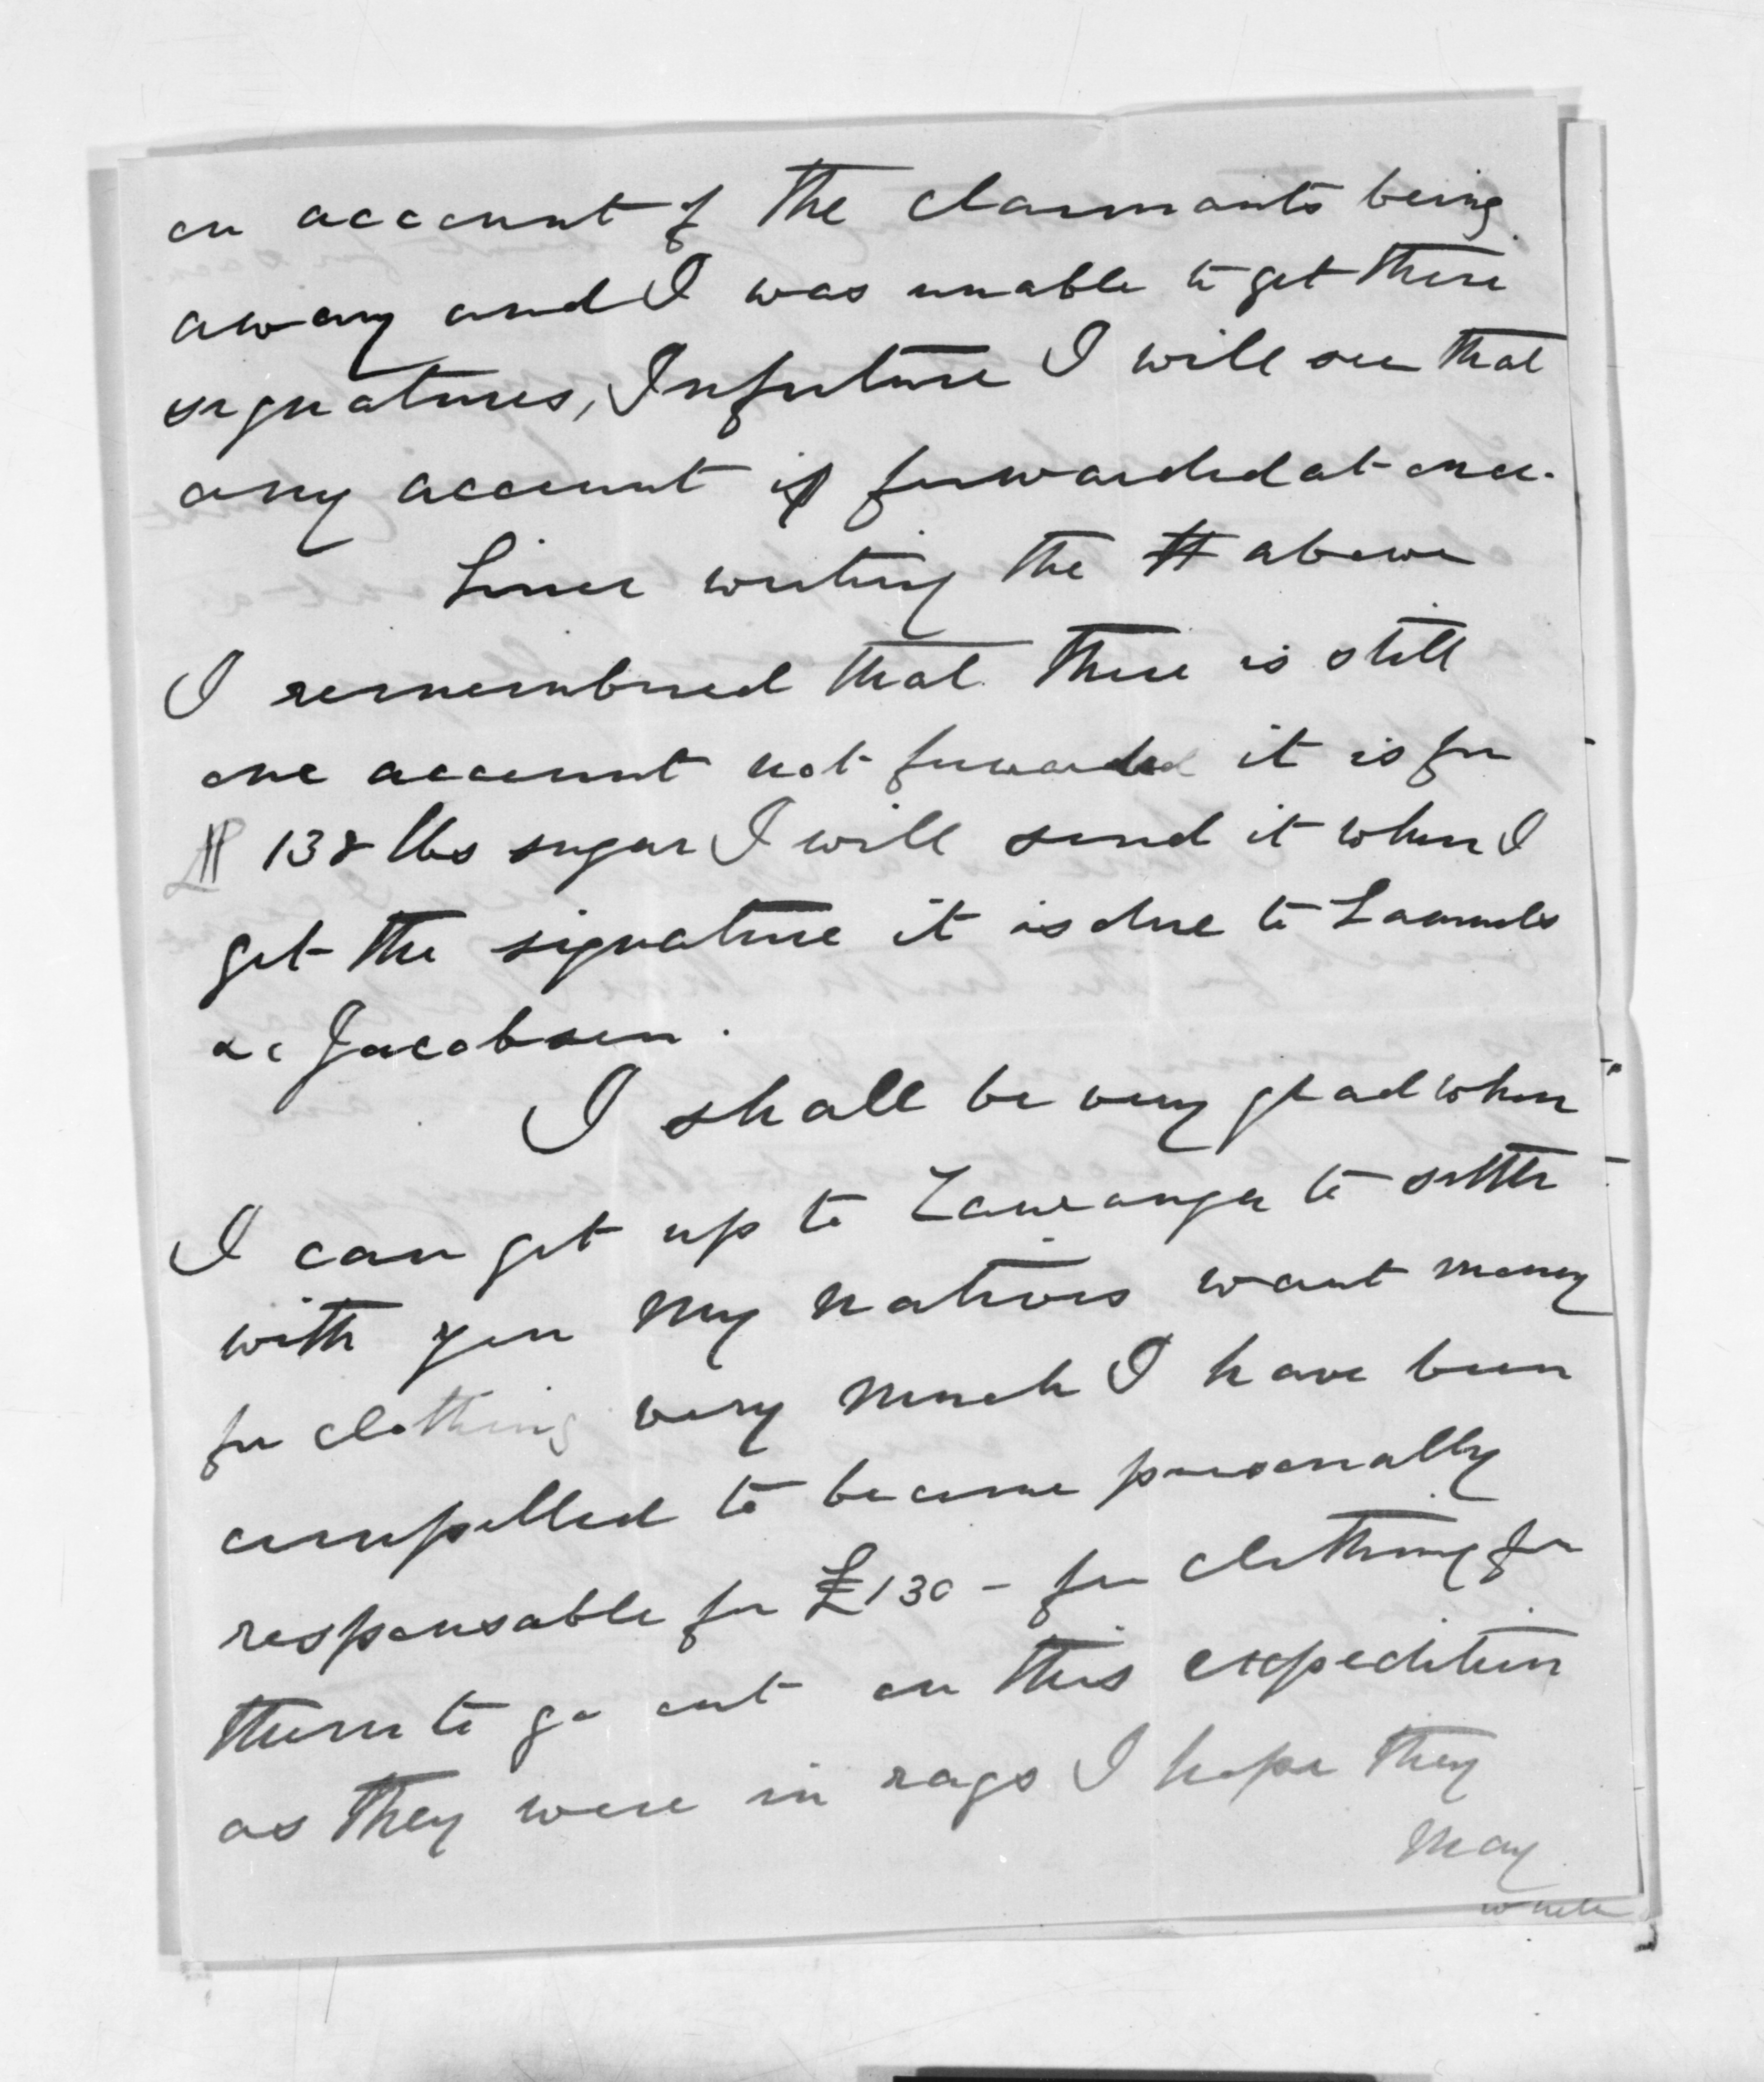 on account of the claimants being
away and I was unable to get there
signatures, In future I will see that
any account is forwarded at once.
Since writing the above
I remembered that there is still
one account not forwarded it is for
138 lbs sugar I will send it when I
get the signature it is due to
& Jacobsen.
I shall be very glad when
I can get up to Tauranga to settle
with you My natives want money
for clothing very much I have been
compelled to become personally
responsable for £130 - for clothing for
them to go out on this expedition
as they were in rags I hope they
may